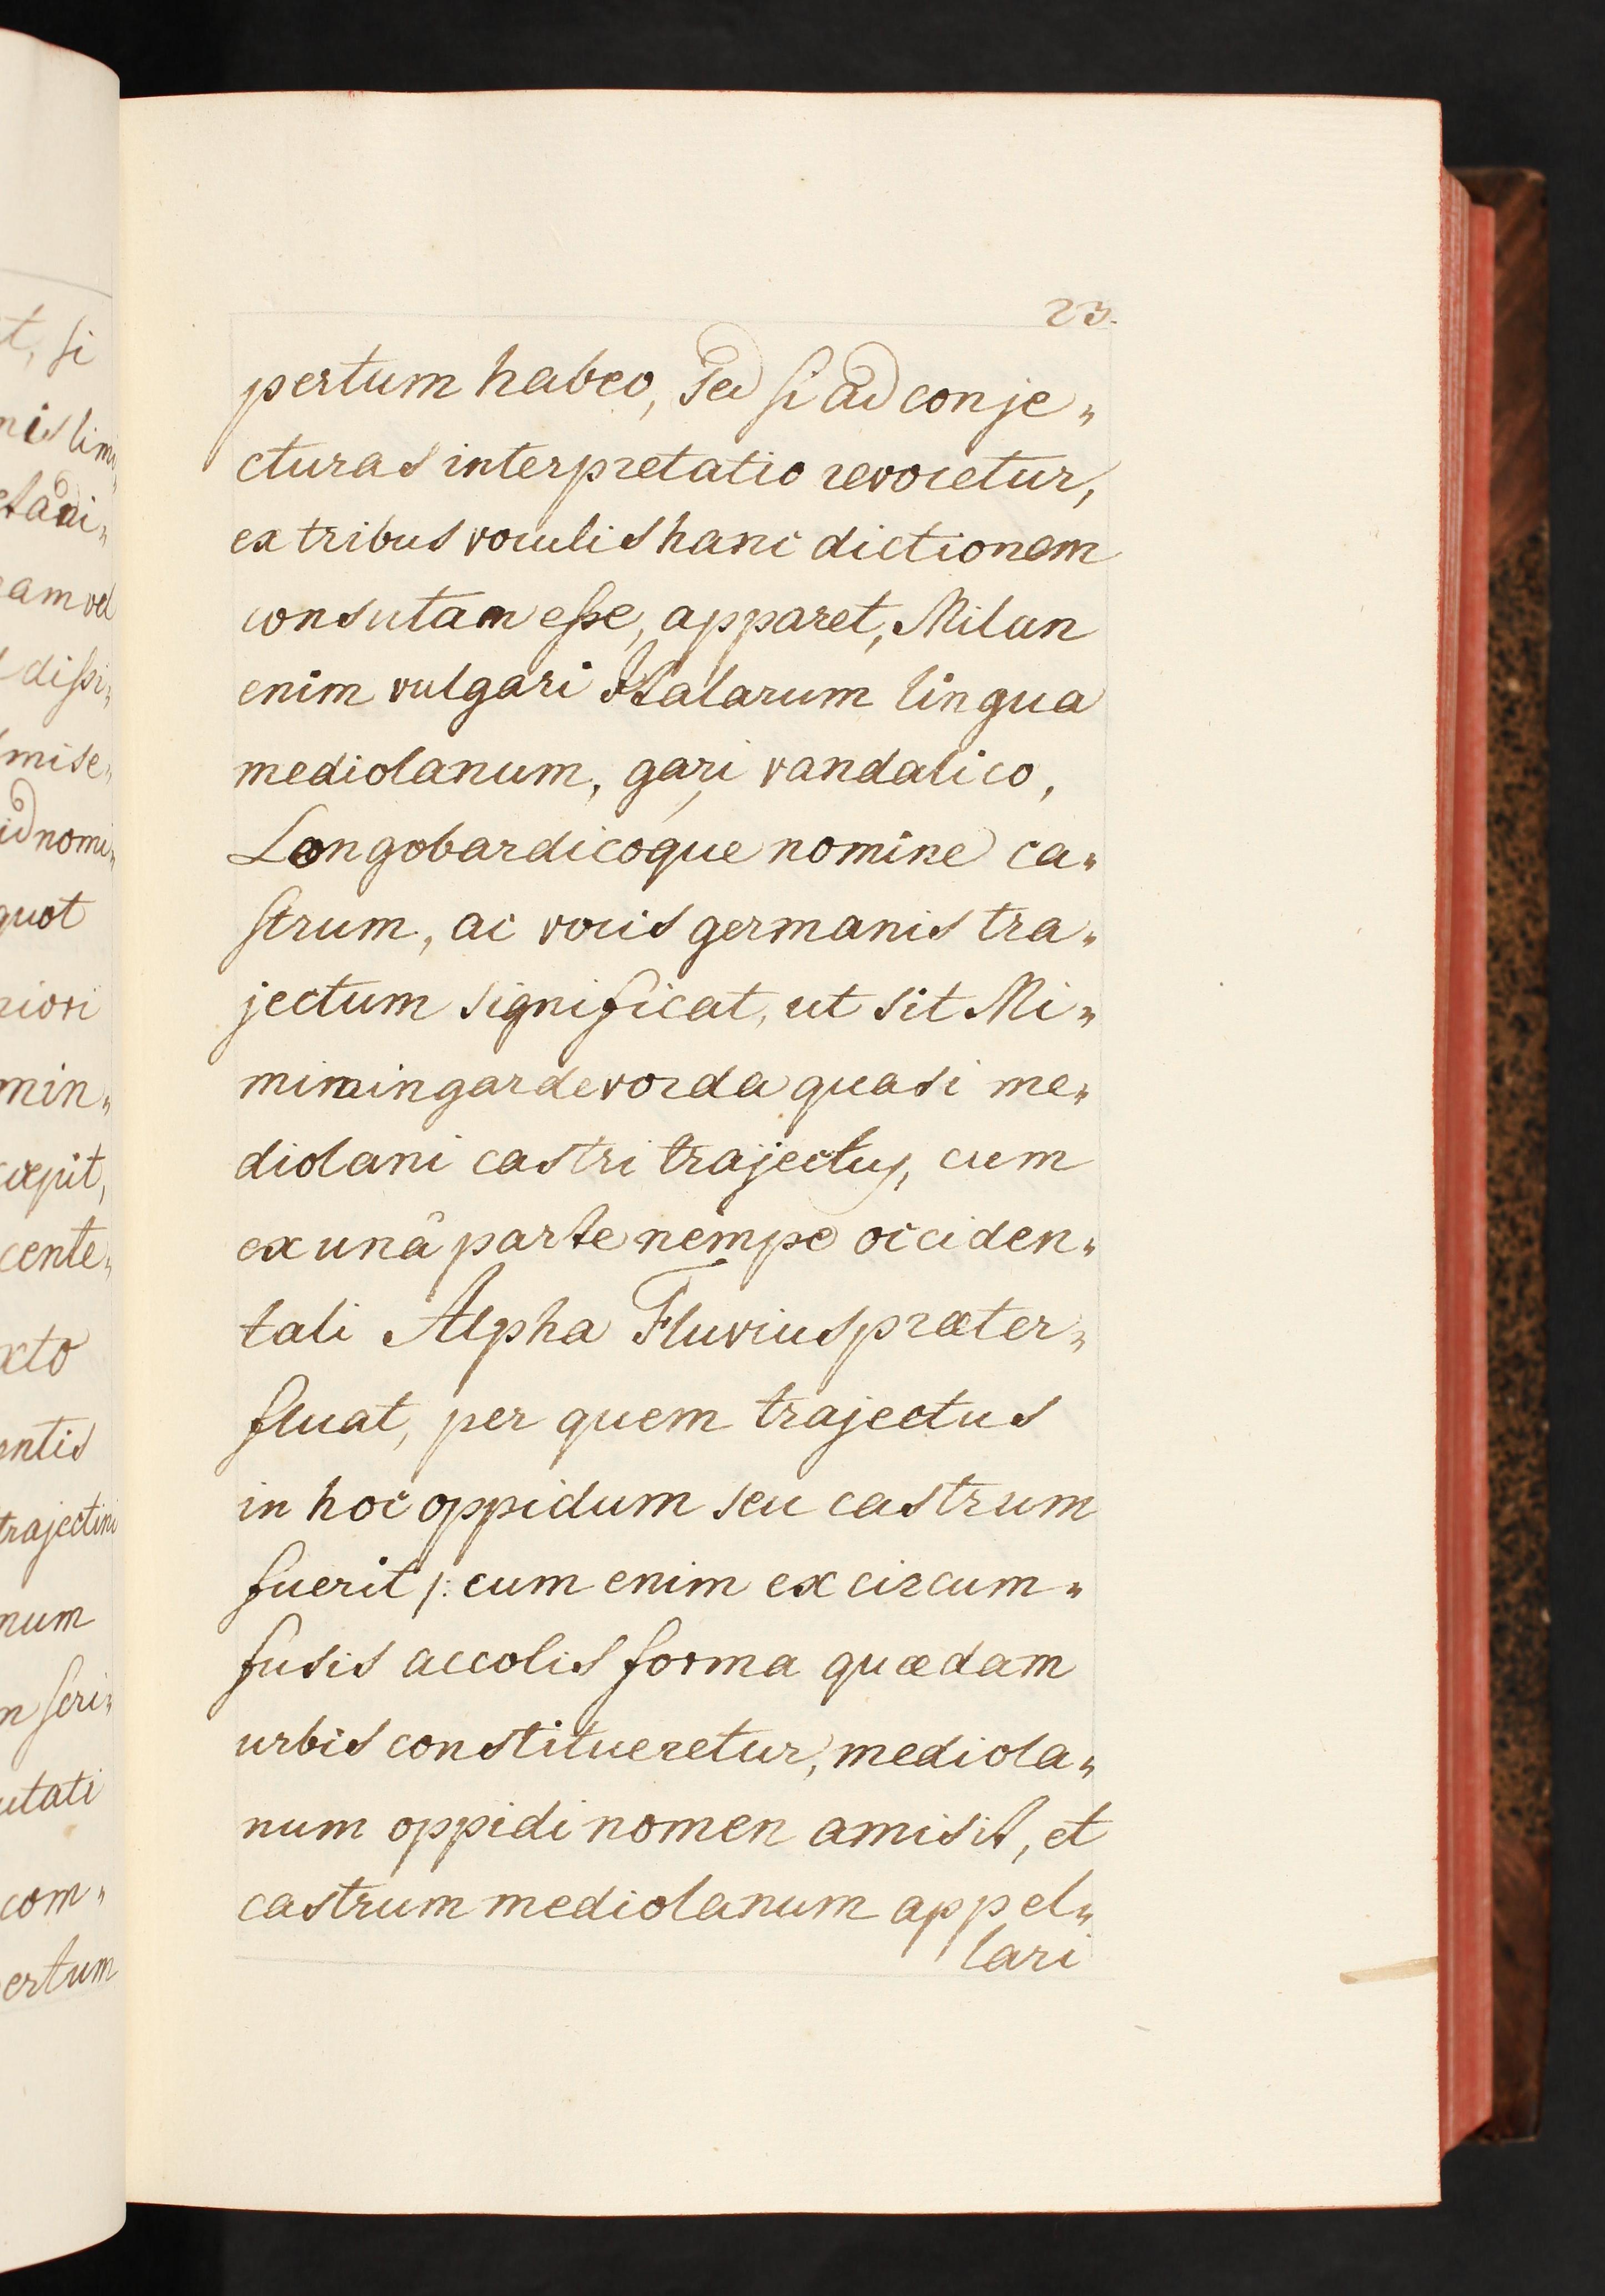 23.
pertum habeo, Sed si ad conje„
cturas interpretatio revocetur,
ex tribus voculis hanc dictionem
consutam esse, apparet, Milan
enim vulgari Italarum lingua
mediolanum, gari vandalico,
Longobardicoque nomine ca„
strum, ac vocis germanis tra„
jectum significat, ut sit Mi„
mimingardevorda quasi me„
diolani castri trajectus, cum
ex unâ parte nempe occiden„
tali Alpha Fluvius præter„
fluat, per quem trajectus
in hoc oppidum seu castrum
fuerit /: cum enim ex circum„
fusis accolis forma quædam
urbis constitueretur, mediola„
num oppidi nomen amisit, et
castrum mediolanum appel„
lari